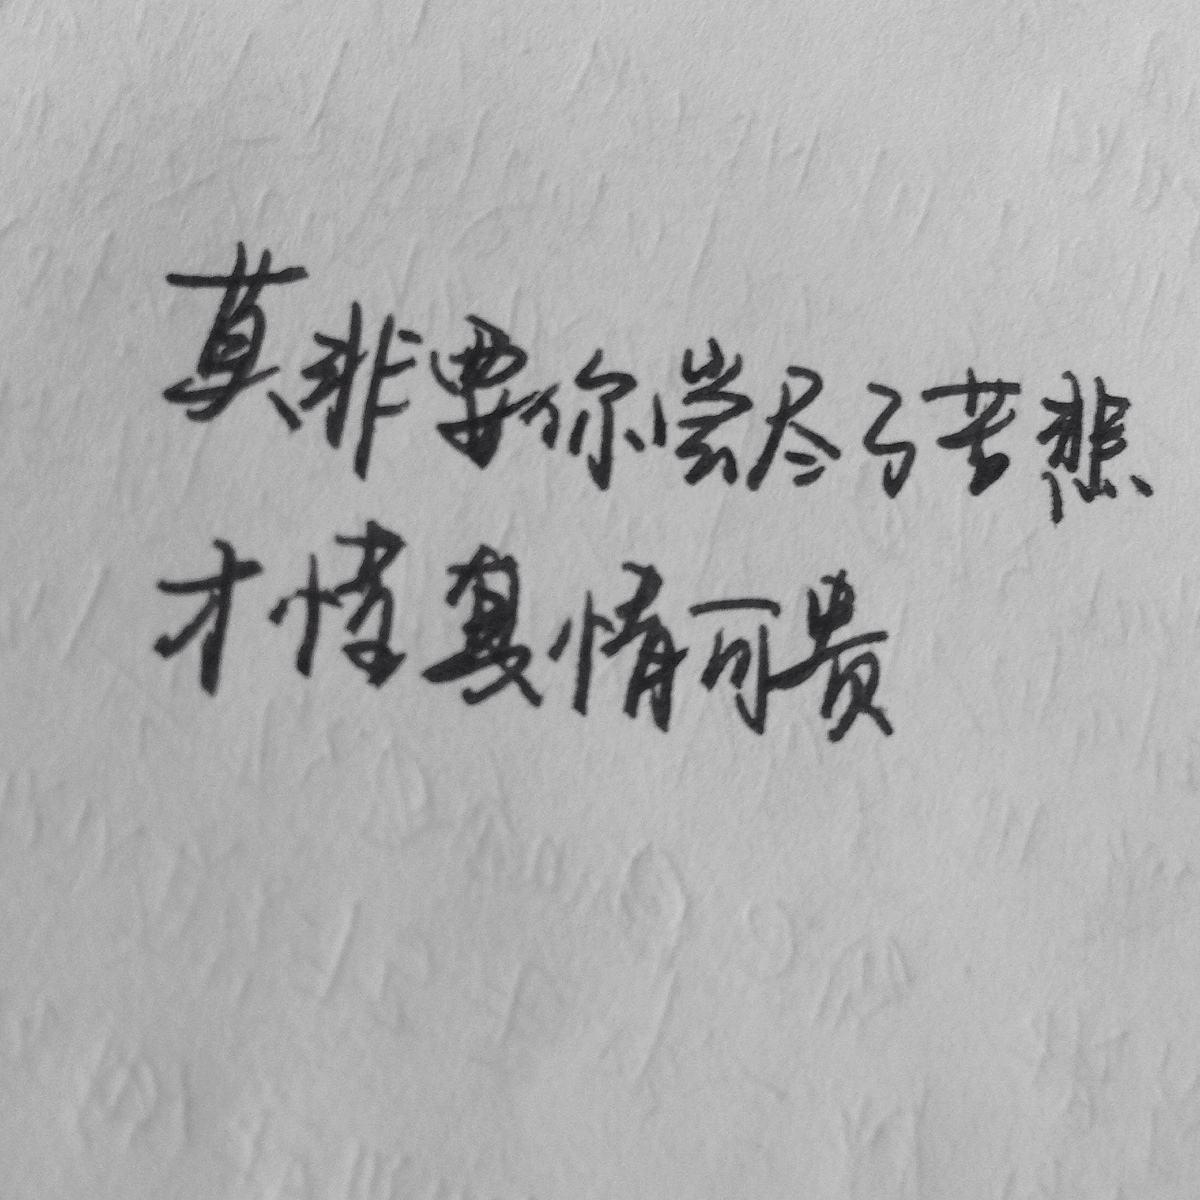 莫非要你尝尽了苦悲
才懂真情可贵